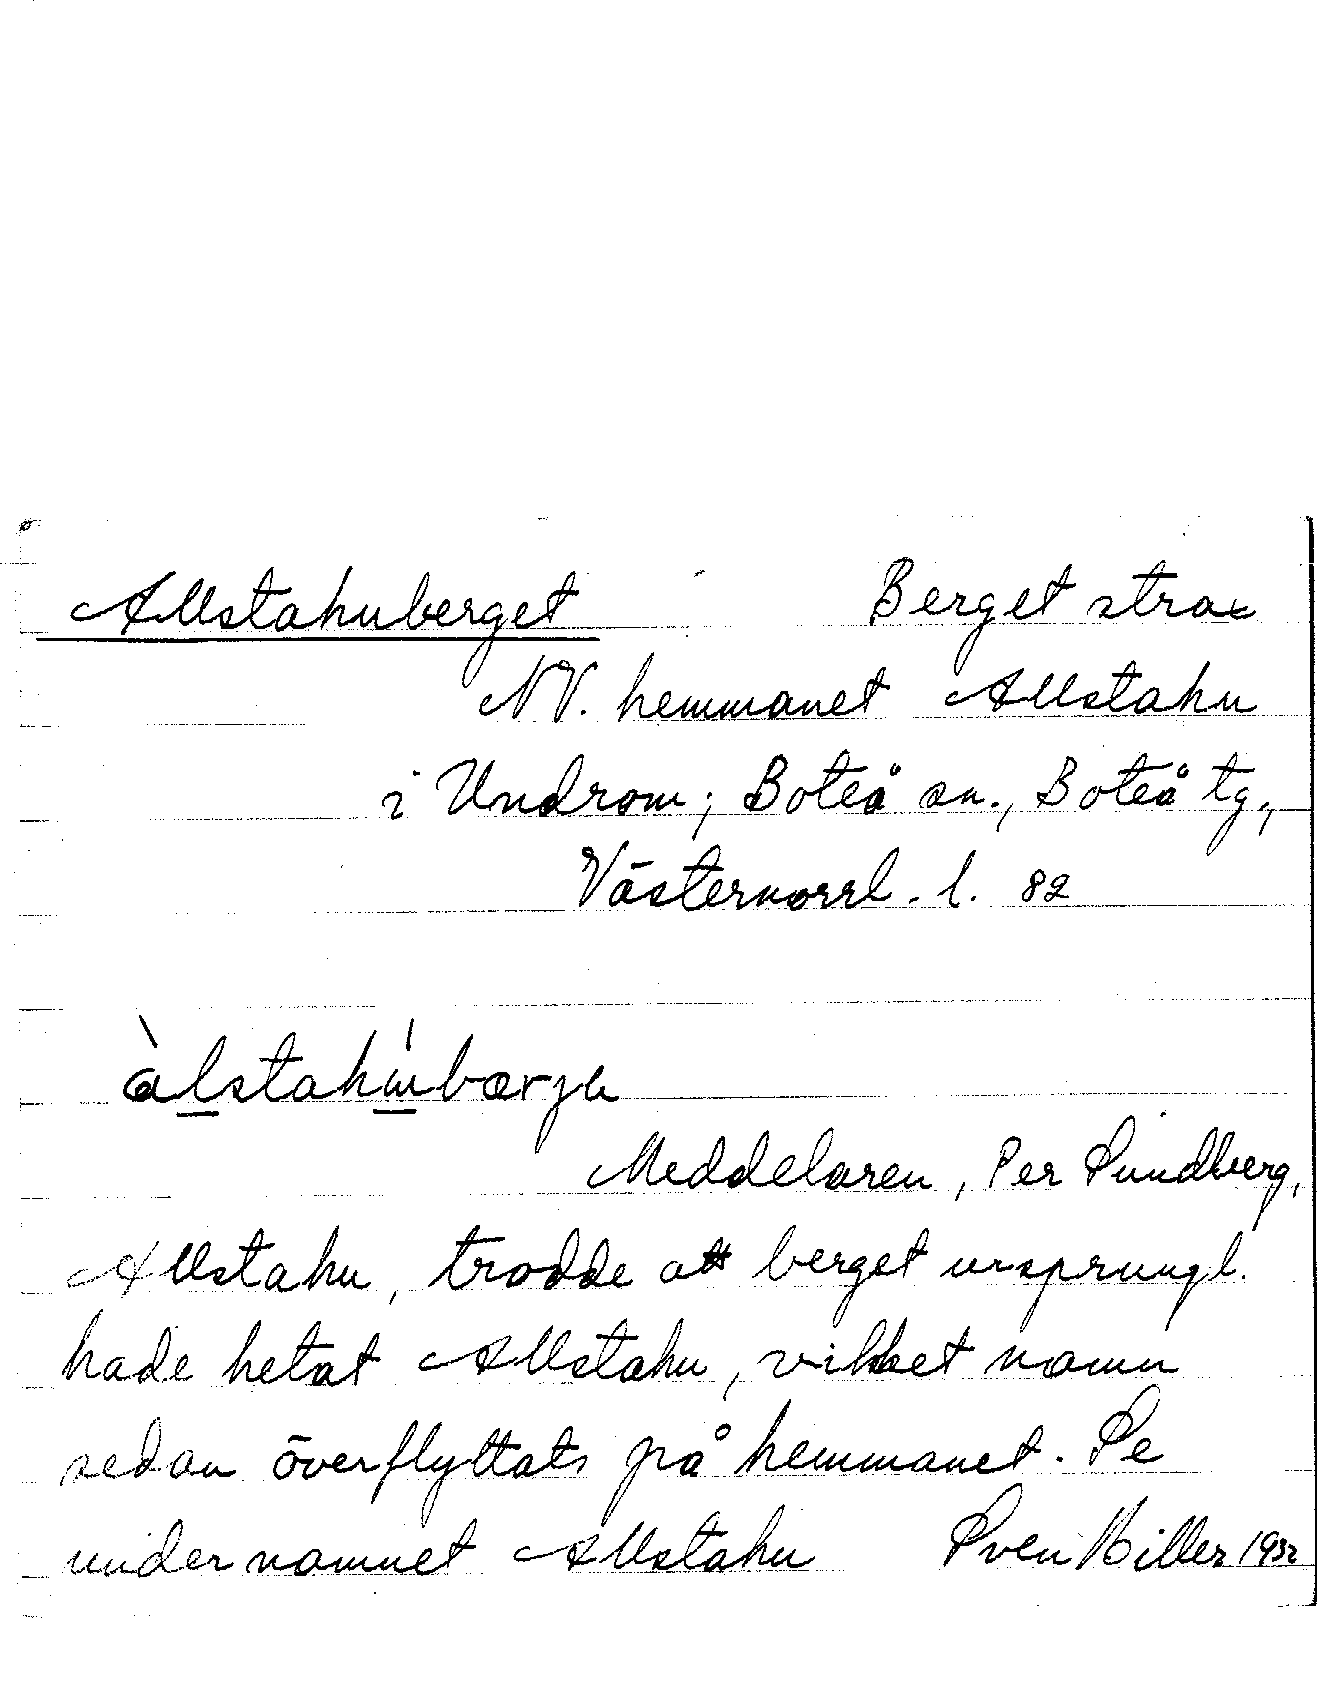 Allstahuberget Berget strax
NV. hemmanet Allstahu
i Undrom; Boteå sn., Boteå tg.,
Västernorrl. l. 82
Meddelaren, Per Sundberg,
Allstahu, trodde att berget ursprungl.
hade hetat Allstahu, vilket namn
sedan överflyttats på hemmanet. Se
under namnet Allstahu Sven Hiller 1932